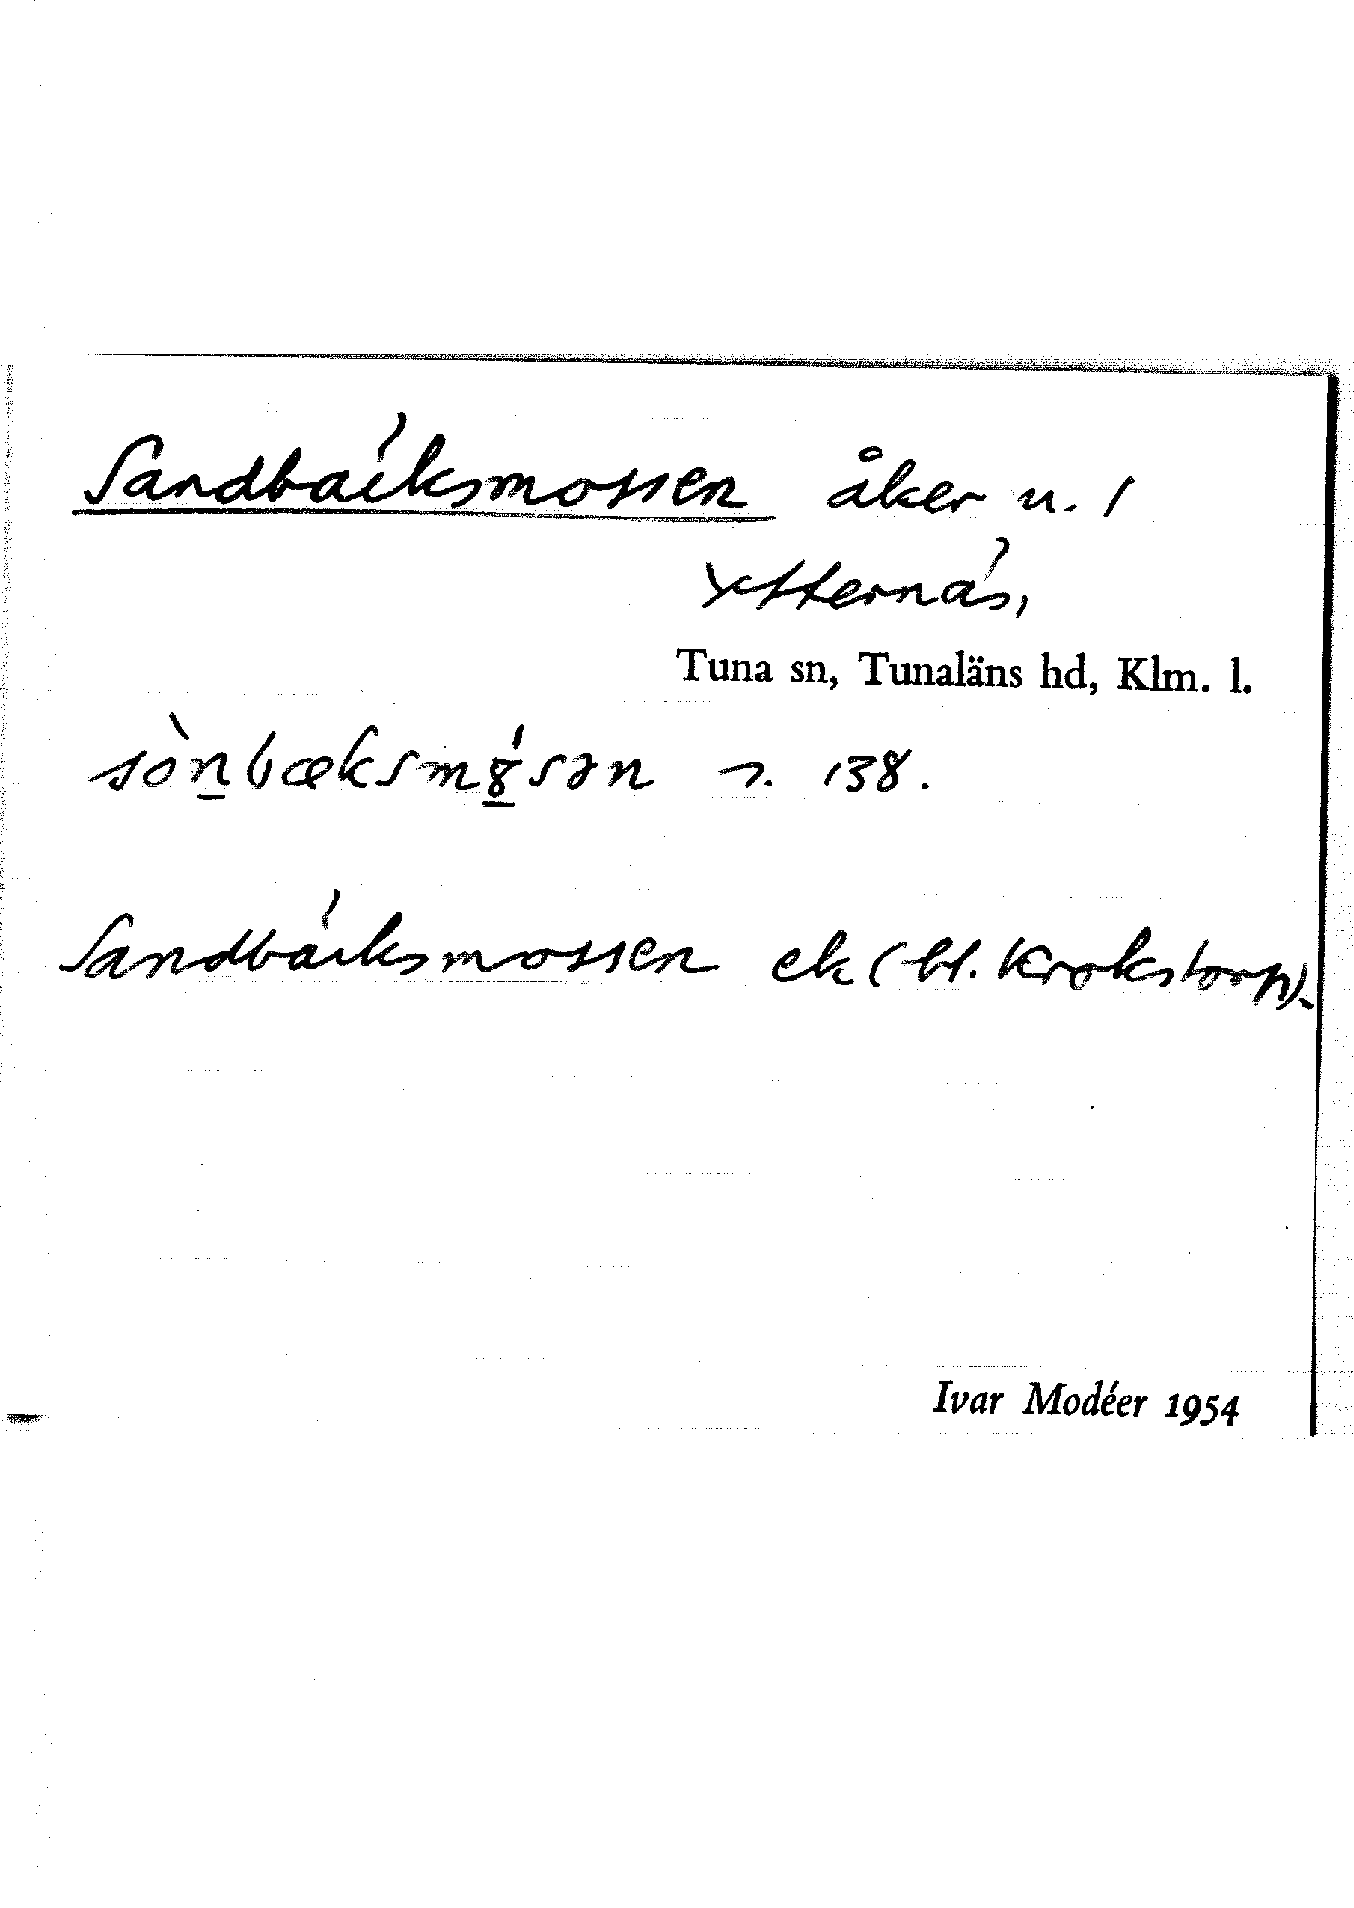 Sandbäcksmossen åker u. /
Ytternäs,
Tuna sn, Tunaläns hd, Klm. l.
sònbæksm8́sən 138.
Sandbäcksmossen ek (bl. Krokstorp).
Ivar Modéer 1954